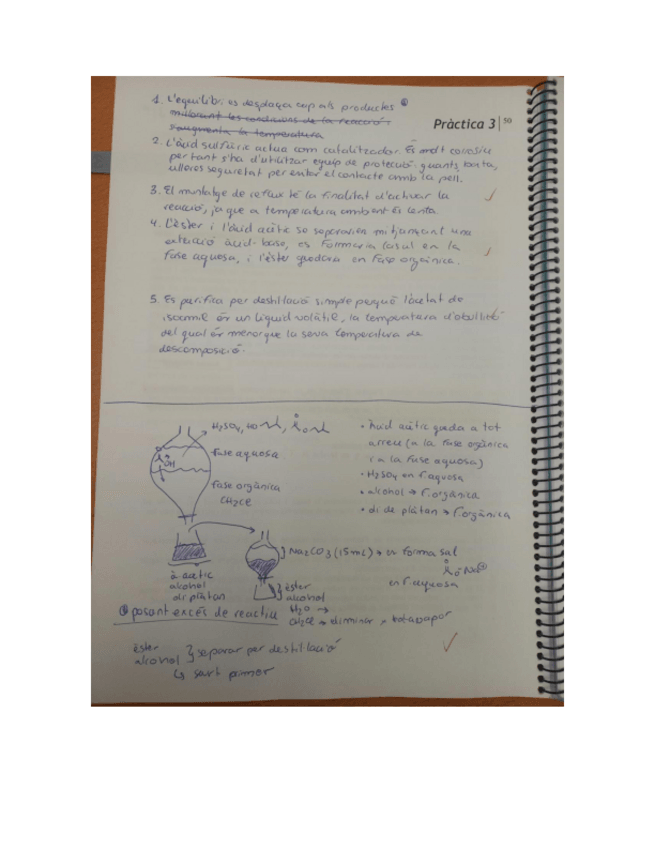 1. L'equilibri es desplaça cap als productes ①
millorant les condicions de la reacció:
s'augmenta la temperatura
Pràctica 3 | 50
2. L'àcid sulfúric actua com catalitzador. És molt corrosiu
per tant s'ha d'utilitzar equip de protecció: guants, bata,
ulleres seguretat per evitar el contacte amb la pell.
3. El muntatge de reflux té la finalitat d'activar la
reacció, ja que a temperatura ambient és lenta.
4. L'èster i l'àcid acètic se separarien mitjançant una
extracció àcid-base, es formaria la sal en la
fase aquosa, i l'èster quedara en fase orgànica.
5. Es purifica per destil·lació simple perquè l'acetat de
isoamil és un líquid volàtil, la temperatura d'ebullició
del qual és menor que la seva temperatura de
descomposició.
H2SO4, HO
fase aquosa
OH
fase orgànica
CH2Cl2
• àcid acètic queda a tot
arreu (a la fase orgànica
i a la fase aquosa)
• H2SO4 en F. aquosa
• alcohol → F. orgànica
• oli de plàtan → F. orgànica
à acètic
alcohol
oli plàtan
Na2CO3 (15 mL) → en forma sal
O Na⊕
en F. aquosa
èster
alcohol
H2O →
CH2Cl2 → eliminar x rotavapor
① posant excés de reactiu
èster
alcohol } separar per destil·lació
↳ surt primer